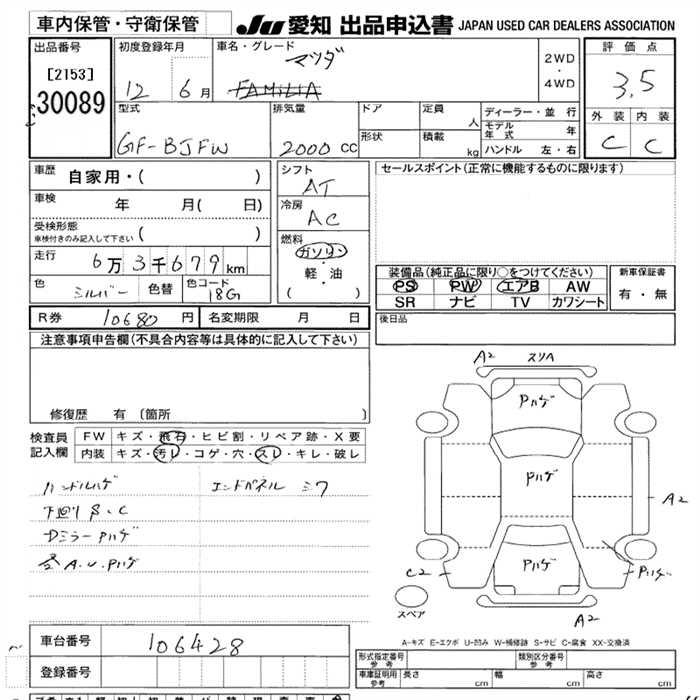 車内保管・守衛保管
JU 愛知 出品申込書 JAPAN USED CAR DEALERS ASSOCIATION
出品番号
[2153]
30089
初度登録年月
12 6月
車名・グレード
マツダ
FAMILIA
2WD
・
4WD
評価点
3.5
外装 内装
C C
型式
GF-BJFW
排気量
2000 CC
ドア
形状
定員
人
積載
kg
ディーラー・並行
モデル年式 年
ハンドル 左・右
車歴 自家用・( )
車検 年 月( 日)
受検形態
車検付きのみ記入して下さい ( )
走行 6万3千679km
色 シルバー 色替 色コード 18G
シフト
AT
冷房
AC
燃料
ガソリン
・
軽・油
( )
セールスポイント(正常に機能するものに限ります)
装備品(純正品に限り○をつけてください)
PS PW エアB AW
SR ナビ TV カワシート
新車保証書
有・無
R券 10680 円 名変期限 月 日
後日品
注意事項申告欄(不具合内容等は具体的に記入して下さい)
修復歴 有 (箇所 )
検査員
記入欄
FW キズ・飛石・ヒビ割・リペア跡・X要
内装 キズ・汚レ・コゲ・穴・スレ・キレ・破レ
ハンドルハゲ エンドパネル ミワ
下回りS.C
DミラーPハゲ
各A.U.Pハゲ
A2 スリヘ
Pハゲ
Pハゲ
A2
Pハゲ
C2 Pハゲ
スペア
A2
A-キズ E-エクボ U-凹み W-補修跡 S-サビ C-腐食 XX-交換済
車台番号 106428
登録番号
形式指定番号 参考 類別区分番号 参考
車庫証明用 参考 長さ cm 幅 cm 高さ cm